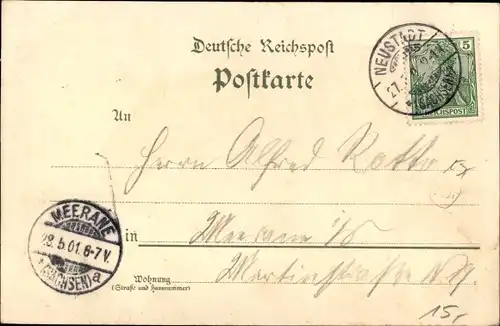 Deutsche Reichspost
Postkarte
NEUSTADT
27.
(SACHSEN)
5
REICHSPOST
An
Herrn Alfred
MEERANE
28.5.01.6-7V.
(SACHSEN) a
in Meerane i/S
Wohnung
(Straße und Hausnummer)
Martinstraße
15,-